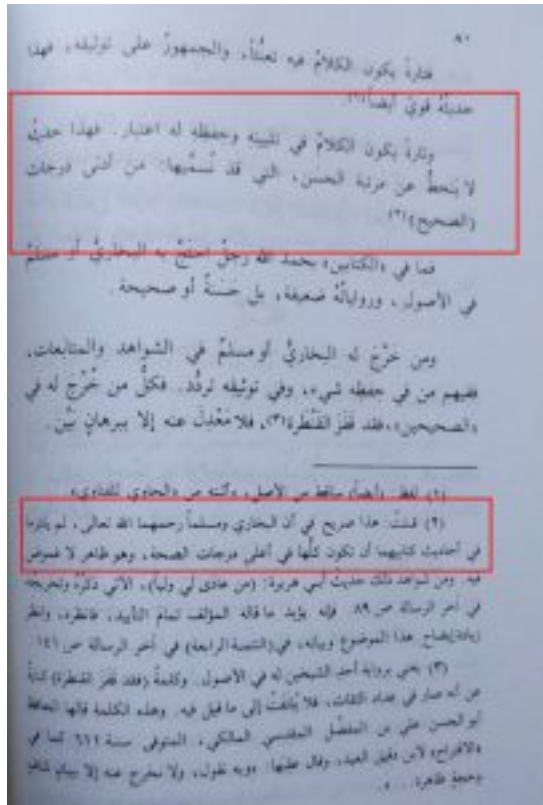 ٨٠
فتارةً يكون الكلامُ فيه تعنُّتاً، والجمهورُ على توثيقه، فهذا
حديثُهُ قويٌّ أيضاً(١).
وتارةً يكون الكلامُ في تليينِهِ وحفظِهِ له اعتبار. فهذا حديثُه
لا يَنحطُّ عن مرتبة الحسن، التي قد نُسمِّيها: من أدنى درجات
(الصحيح)(٢).
فما في «الكتابين» بحمد الله رجلٌ احتَجَّ به البخاريُّ أو مسلمٌ
في الأصول، ورواياتُهُ ضعيفة، بل حَسَنةٌ أو صحيحة.
ومن خَرَّجَ له البخاريُّ أو مسلمٌ في الشواهد والمتابعات،
ففيهم من في حفظه شيء، وفي توثيقه تردُّد. فكلُّ من خُرِّجَ له في
«الصحيحين»، فقد قَفَزَ القَنْطَرة(٣)، فلا مَعْدِلَ عنه إلا ببرهانٍ بَيِّن.
(١) لفظ (أيضاً) ساقط من الأصل، وأثبته من «الحاوي للفتاوي»
(٢) قلتُ: هذا صريح في أن البخاري ومسلماً رحمهما الله تعالى، لم يلتزما
في أحاديث كتابيهما أن تكون كلُّها في أعلى درجات الصحة، وهو ظاهر لا غموض
فيه. ومن شواهد ذلك حديثُ أبي هريرة: (من عادى لي ولياً)، الآتي ذكرُهُ وتخريجه
في آخر الرسالة ص ٨٩ فإنه يؤيد ما قاله المؤلف تمام التأييد، فانظره، وانظر
زيادة إيضاح هذا الموضوع وبيانه، في (التتمة الرابعة) في آخر الرسالة ص ١٤١
(٣) يعني برواية أحد الشيخين له في الأصول. وكلمةُ (فقد قَفَزَ القنطرة) كنايةٌ
عن أنه صار في عداد الثقات، فلا يُلتفتُ إلى ما قيل فيه. وهذه الكلمة قالها الحافظ
أبو الحسن علي بن المفضَّل المقدسي المالكي، المتوفى سنة ٦١١ كما في
«الاقتراح» لابن دقيق العيد، وقال عقبها: «وبه نقول، ولا نخرج عنه إلا ببيانٍ شافٍ
وحجةٍ ظاهرة....».